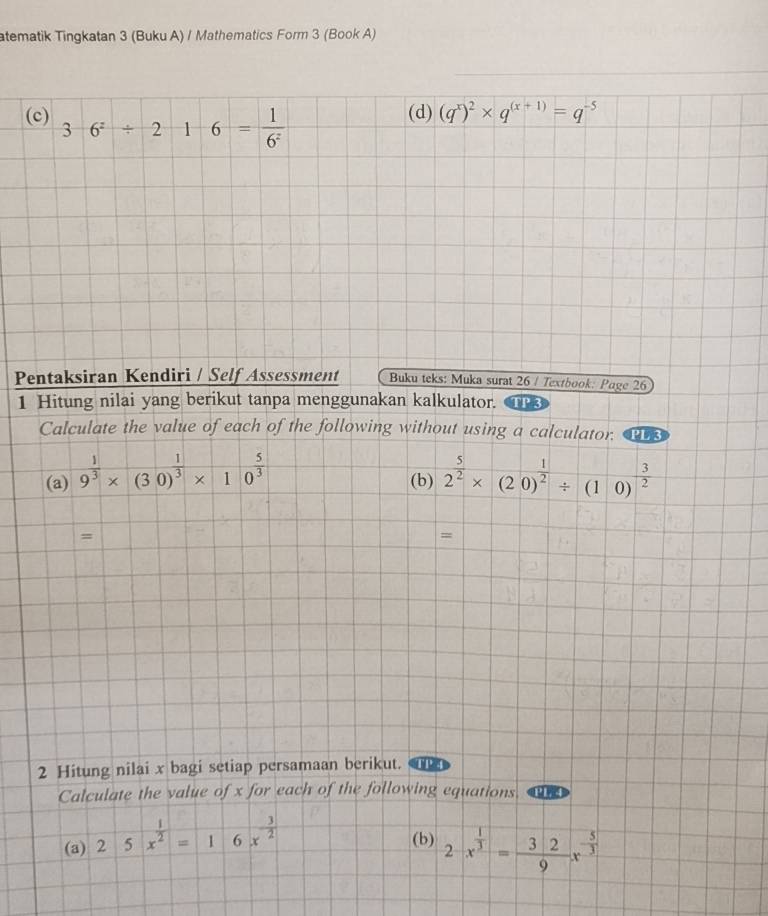 atematik Tingkatan 3 (Buku A) / Mathematics Form 3 (Book A)
(c) 3 6^z ÷ 2 1 6 = 1/6^z
(d) (q^x)^2 × q^(x + 1) = q^-5
Pentaksiran Kendiri / Self Assessment
Buku teks: Muka surat 26 / Textbook: Page 26
1 Hitung nilai yang berikut tanpa menggunakan kalkulator. TP 3
Calculate the value of each of the following without using a calculator. PL 3
(a) 9^(1/3) × (3 0)^(1/3) × 1 0^(5/3)
(b) 2^(5/2) × (2 0)^(1/2) ÷ (1 0)^(3/2)
=
=
2 Hitung nilai x bagi setiap persamaan berikut. TP 4
Calculate the value of x for each of the following equations. PL 4
(a) 2 5 x^(1/2) = 1 6 x^(-3/2)
(b) 2 x^(1/3) = 3 2/9 x^(-5/3)